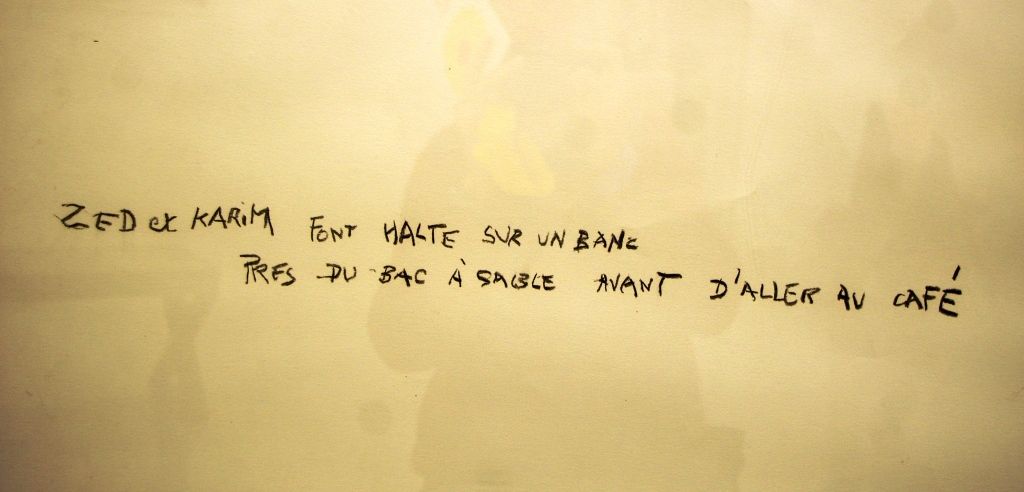 ZED et KARiM FONT HALTE SUR UN BANC
PRES DU BAC À SABLE AVANT D'ALLER AU CAFÉ